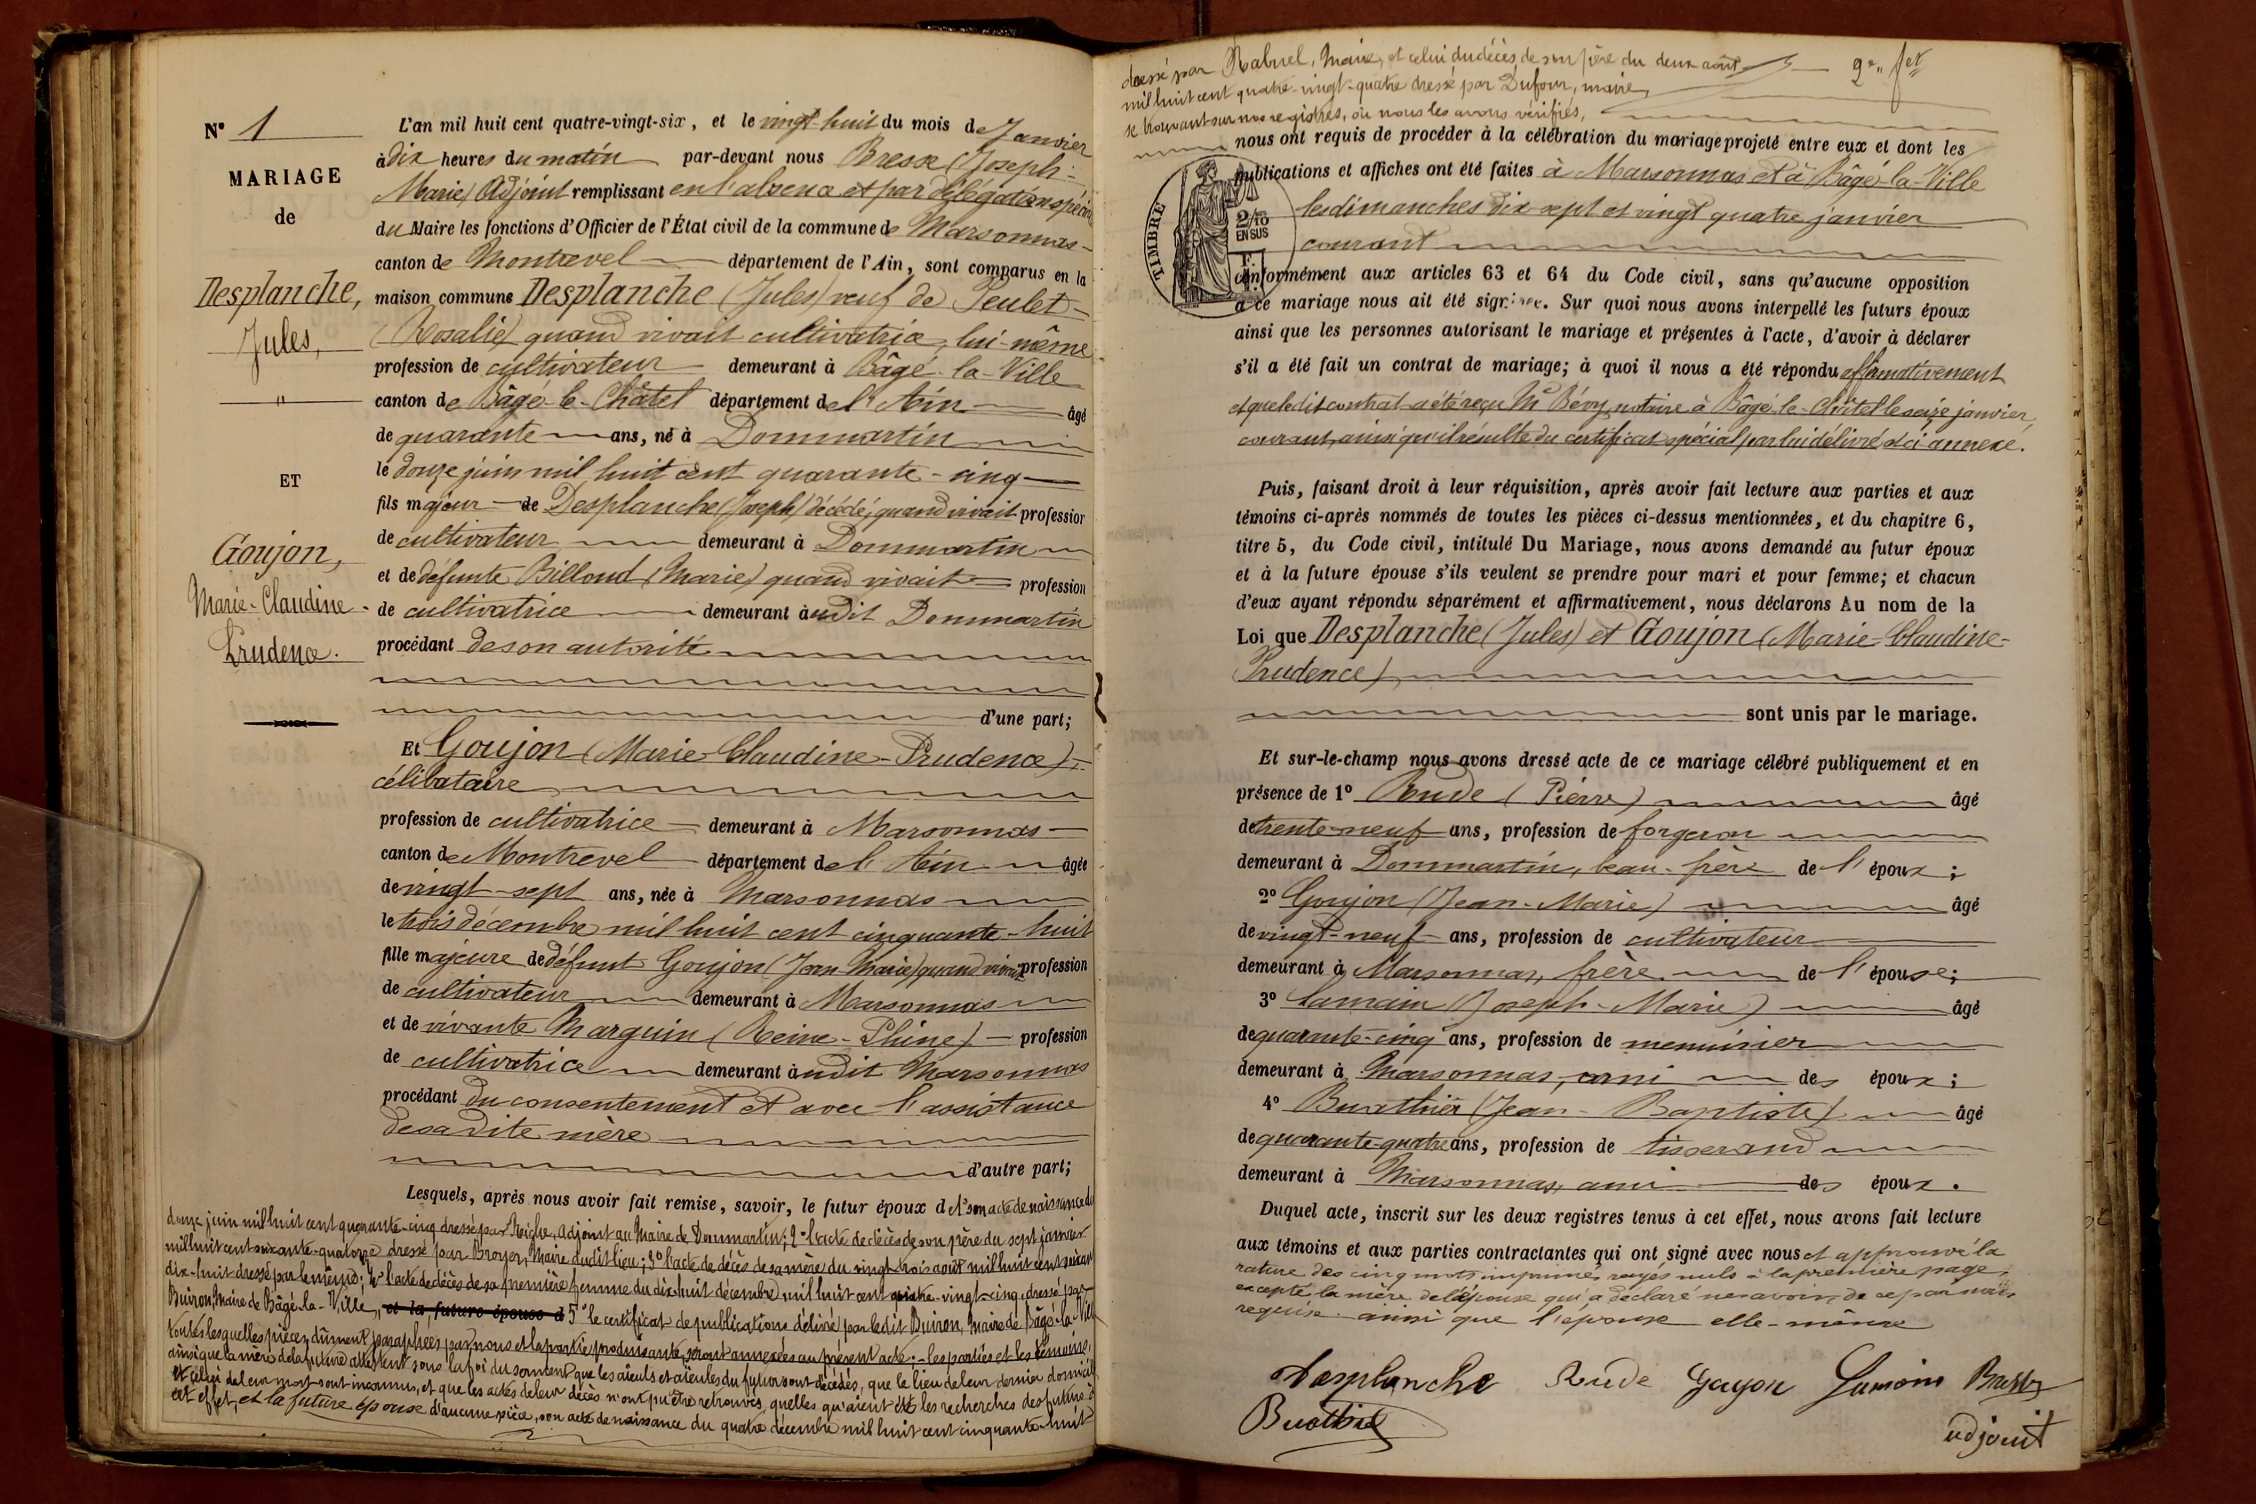 N° 1
MARIAGE
de
Desplanche,
Jules,
"
ET
Goujon,
Marie-Claudine-
Prudence.
L'an mil huit cent quatre-vingt-six, et le vingt-huit du mois de Janvier
à dix heures du matin par-devant nous Bresse (Joseph-
Marie) Adjoint remplissant en l'absence et par délégation spéciale
du Maire les fonctions d'Officier de l'État civil de la commune de Marsonnas
canton de Montrevel département de l'Ain, sont comparus en la
maison commune Desplanche (Jules) veuf de Peulet
(Rosalie) quand vivait cultivatrice, lui-même
profession de cultivateur demeurant à Bâgé-la-Ville
canton de Bâgé-le-Châtel département de l'Ain âgé
de quarante ans, né à Dommartin
le douze juin mil huit cent quarante-cinq
fils majeur de Desplanche (Joseph) décédé, quand vivait profession
de cultivateur demeurant à Dommartin
et de défunte Billoud (Marie) quand vivait profession
de cultivatrice demeurant audit Dommartin
procédant de son autorité
d'une part;
Et Goujon (Marie-Claudine-Prudence),
célibataire
profession de cultivatrice demeurant à Marsonnas
canton de Montrevel département de l'Ain âgée
de vingt-sept ans, née à Marsonnas
le trois décembre mil huit cent cinquante-huit
fille majeure de défunt Goujon (Jean-Marie) quand vivait profession
de cultivateur demeurant à Marsonnas
et de vivante Marguin (Reine-Phine) profession
de cultivatrice demeurant audit Marsonnas
procédant du consentement et avec l'assistance
de sa dite mère
d'autre part;
Lesquels, après nous avoir fait remise, savoir, le futur époux de 1° son acte de naissance du
douze juin mil huit cent quarante-cinq dressé par Adjoint au Maire de Dommartin; 2° l'acte de décès de son père du sept janvier
mil huit cent soixante-quatorze dressé par Broyer, Maire dudit lieu; 3° l'acte de décès de sa mère du vingt-trois août mil huit cent soixante
dix-huit dressé par le même; 4° l'acte de décès de sa première femme du dix-huit décembre mil huit cent quatre-vingt-cinq, dressé par
Buiron, Maire de Bâgé-la-Ville, et la future épouse d 5° le certificat de publications délivré par ledit Buiron, Maire de Bâgé-la-Ville
toutes lesquelles pièces, dûment paraphées par nous et la partie produisante, seront annexées au présent acte; les parties et les témoins,
ainsi que la mère de la future attestent sous la foi du serment que les aïeuls et aïeules du futur sont décédés, que le lieu de leur dernier domicile
et celui de leur mort sont inconnus, et que les actes de leur décès n'ont pu être retrouvés, quelles qu'aient été les recherches des futurs à
cet effet, et la future épouse d'aucune pièce, son acte de naissance du quatre décembre mil huit cent cinquante-huit
dressé par Rabuel, Maire, et celui du décès de son père du deux août 2e fet
mil huit cent quatre-vingt-quatre dressé par Dufour, maire,
se trouvant sur nos registres, où nous les avons vérifiés,
nous ont requis de procéder à la célébration du mariage projeté entre eux et dont les
publications et affiches ont été faites à Marsonnas et à Bâgé-la-Ville
les dimanches dix-sept et vingt-quatre janvier
courant
TIMBRE
2/10
EN SUS
conformément aux articles 63 et 64 du Code civil, sans qu'aucune opposition
à ce mariage nous ait été signifiée. Sur quoi nous avons interpellé les futurs époux
ainsi que les personnes autorisant le mariage et présentes à l'acte, d'avoir à déclarer
s'il a été fait un contrat de mariage; à quoi il nous a été répondu affirmativement
et que ledit contrat a été reçu Me Bévy, notaire à Bâgé-le-Châtel le seize janvier
courant, ainsi qu'il résulte du certificat spécial par lui délivré et ci-annexé.
Puis, faisant droit à leur réquisition, après avoir fait lecture aux parties et aux
témoins ci-après nommés de toutes les pièces ci-dessus mentionnées, et du chapitre 6,
titre 5, du Code civil, intitulé Du Mariage, nous avons demandé au futur époux
et à la future épouse s'ils veulent se prendre pour mari et pour femme; et chacun
d'eux ayant répondu séparément et affirmativement, nous déclarons Au nom de la
Loi que Desplanche (Jules) et Goujon (Marie-Claudine-
Prudence)
sont unis par le mariage.
Et sur-le-champ nous avons dressé acte de ce mariage célébré publiquement et en
présence de 1° Rude (Pierre) âgé
de trente-neuf ans, profession de forgeron
demeurant à Dommartin, beau-frère de l'époux;
2° Goujon (Jean-Marie) âgé
de vingt-neuf ans, profession de cultivateur
demeurant à Marsonnas, frère de l'épouse;
3° Lamain (Joseph-Marie) âgé
de quarante-cinq ans, profession de menuisier
demeurant à Marsonnas, ami des époux;
4° Buathier (Jean-Baptiste) âgé
de quarante-quatre ans, profession de tisserand
demeurant à Marsonnas, ami des époux.
Duquel acte, inscrit sur les deux registres tenus à cet effet, nous avons fait lecture
aux témoins et aux parties contractantes qui ont signé avec nous et approuvé la
rature des cinq mots imprimés rayés nuls à la première page,
excepté la mère de l'épouse qui a déclaré ne savoir, de ce par nous
requise ainsi que l'épouse elle-même
Desplanche Rude Goujon Lamain Bresse
Buathier adjoint